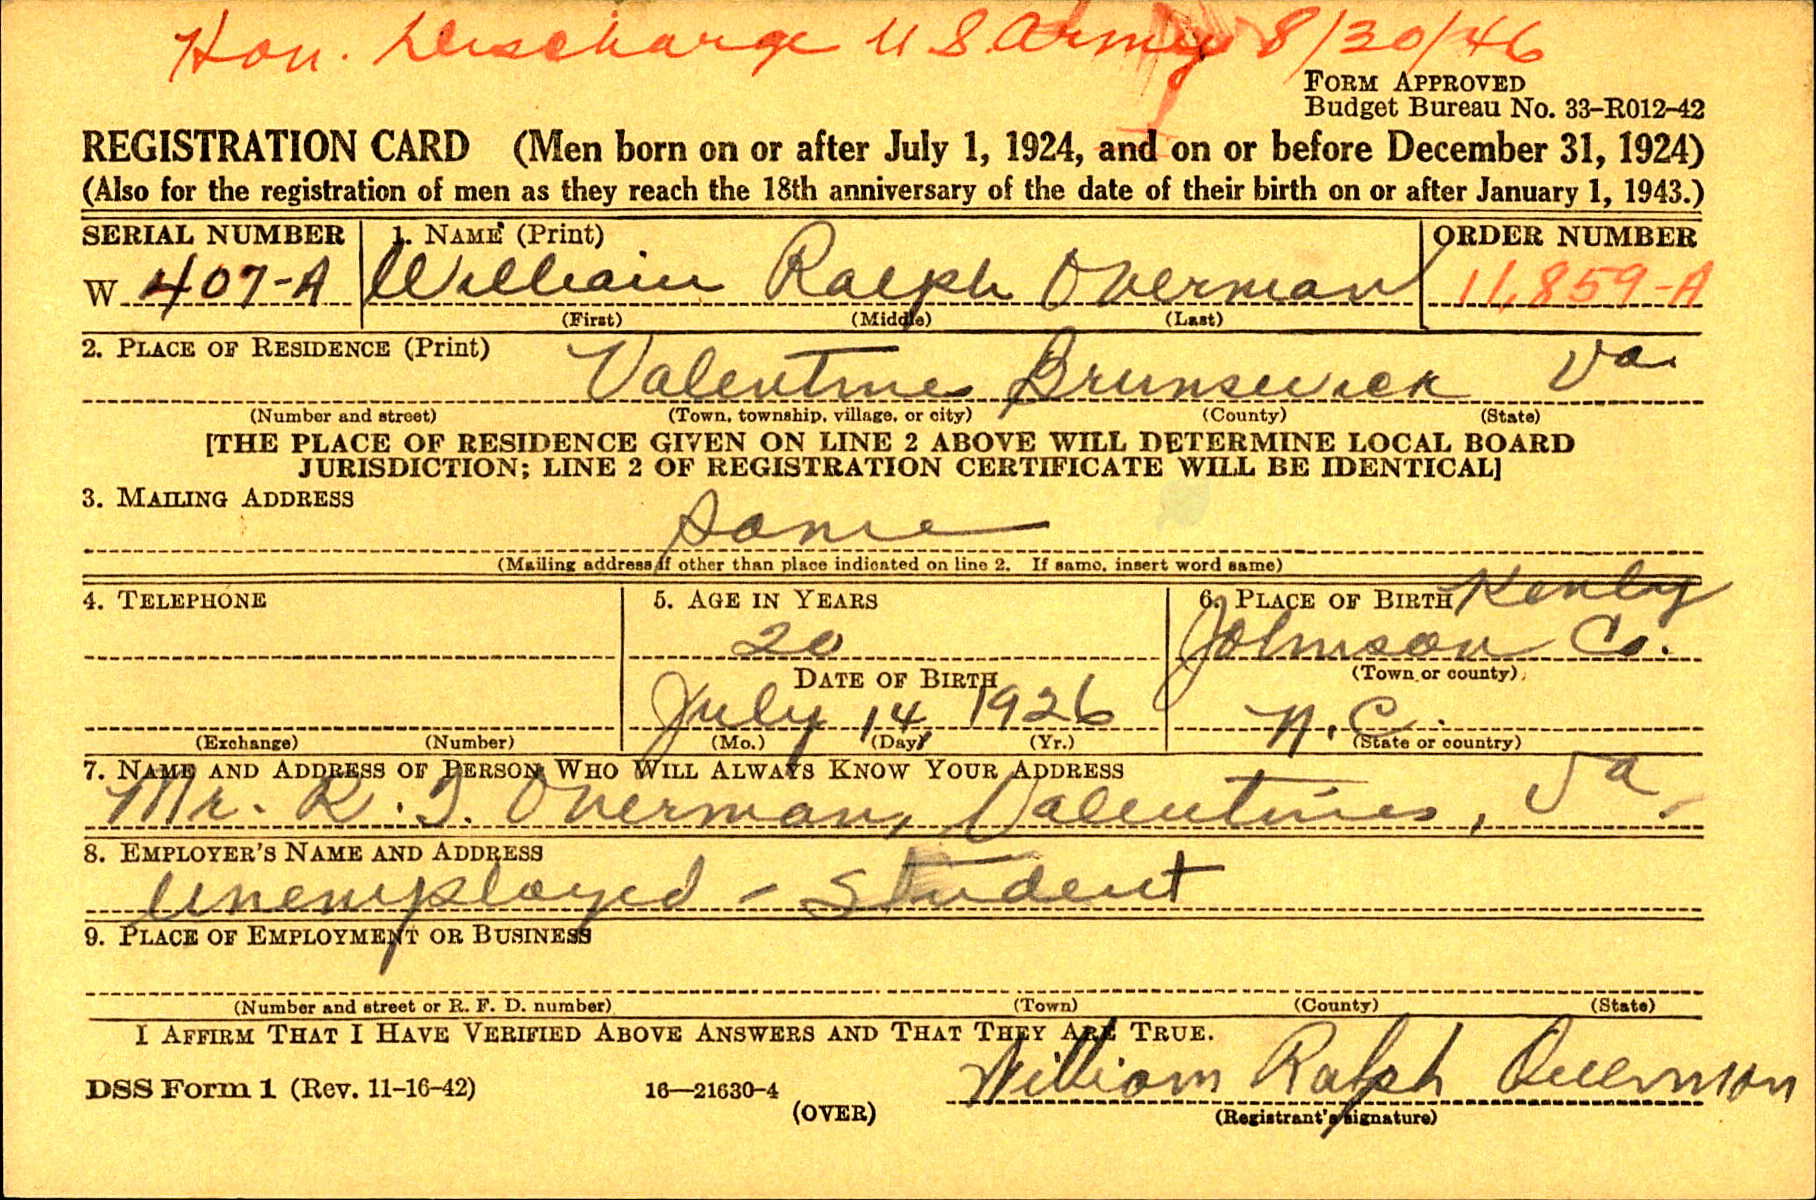 Hon. Discharge U S Army 8/30/46
FORM APPROVED
Budget Bureau No. 33-R012-42
REGISTRATION CARD (Men born on or after July 1, 1924, and on or before December 31, 1924)
(Also for the registration of men as they reach the 18th anniversary of the date of their birth on or after January 1, 1943.)
SERIAL NUMBER 1. NAME (Print) ORDER NUMBER
W 407-A William Ralph Overman 11,859-A
(First) (Middle) (Last)
2. PLACE OF RESIDENCE (Print)
Valentines Brunswick Va.
(Number and street) (Town, township, village, or city) (County) (State)
[THE PLACE OF RESIDENCE GIVEN ON LINE 2 ABOVE WILL DETERMINE LOCAL BOARD
JURISDICTION; LINE 2 OF REGISTRATION CERTIFICATE WILL BE IDENTICAL]
3. MAILING ADDRESS
Same
(Mailing address if other than place indicated on line 2. If same, insert word same)
4. TELEPHONE 5. AGE IN YEARS 6. PLACE OF BIRTH Kenly
20 Johnson Co.
DATE OF BIRTH (Town or county)
July 14 1926 N.C.
(Exchange) (Number) (Mo.) (Day) (Yr.) (State or country)
7. NAME AND ADDRESS OF PERSON WHO WILL ALWAYS KNOW YOUR ADDRESS
Mr. R. I. Overman, Valentines, Va.
8. EMPLOYER'S NAME AND ADDRESS
Unemployed - Student
9. PLACE OF EMPLOYMENT OR BUSINESS
(Number and street or R. F. D. number) (Town) (County) (State)
I AFFIRM THAT I HAVE VERIFIED ABOVE ANSWERS AND THAT THEY ARE TRUE.
DSS Form 1 (Rev. 11-16-42) 16—21630-4 William Ralph Overman
(OVER) (Registrant's signature)